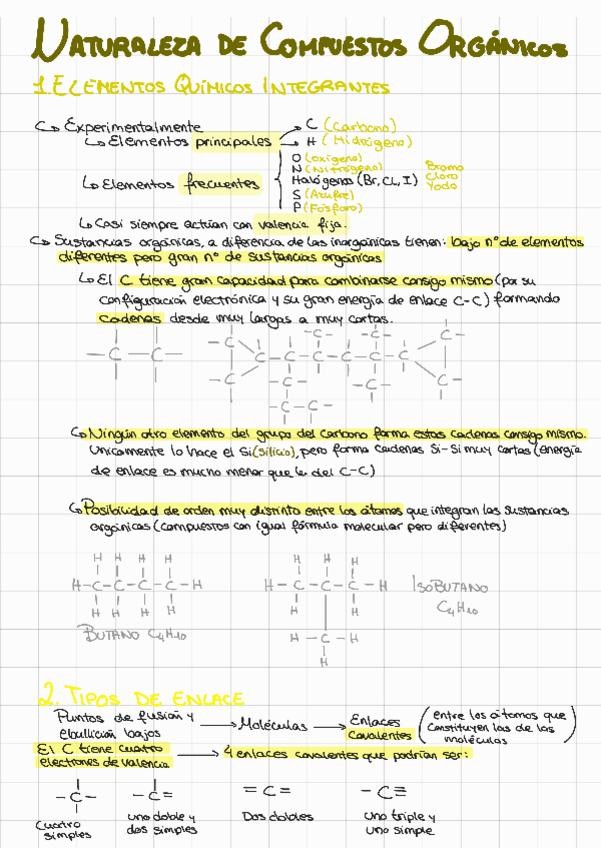 NATURALEZA DE COMPUESTOS ORGÁNICOS
1. ELEMENTOS QUÍMICOS INTEGRANTES
Experimentalmente
Elementos principales
C (Carbono)
H (Hidrógeno)
Elementos frecuentes
O (oxígeno)
N (Nitrógeno)
Halógenos (Br, Cl, I)
Bromo
Cloro
Yodo
S (Azufre)
P (Fósforo)
Casi siempre actúan con valencia fija.
Sustancias orgánicas, a diferencia de las inorgánicas tienen: bajo nº de elementos
diferentes pero gran nº de sustancias orgánicas
El C tiene gran capacidad para combinarse consigo mismo (por su
configuración electrónica y su gran energía de enlace C-C) formando
cadenas desde muy largas a muy cortas.
Ningún otro elemento del grupo del carbono forma estas cadenas consigo mismo.
Unicamente lo hace el Si (silicio), pero forma cadenas Si-Si muy cortas (energía
de enlace es mucho menor que la del C-C)
Posibilidad de orden muy distinto entre los átomos que integran las sustancias
orgánicas (compuestos con igual fórmula molecular pero diferentes)
H H H H
H-C-C-C-C-H
H H H H
BUTANO C4H10
H H H
H-C-C-C-H
H H
H-C-H
H
ISOBUTANO
C4H10
2. TIPOS DE ENLACE
Puntos de fusión y
ebullición bajos
Moléculas
Enlaces
covalentes
(entre los átomos que
constituyen las de las
moléculas)
El C tiene cuatro
electrones de valencia
4 enlaces covalentes que podrían ser:
-C-
-C=
=C=
-C≡
Cuatro
simples
uno doble y
dos simples
Dos dobles
uno triple y
uno simple